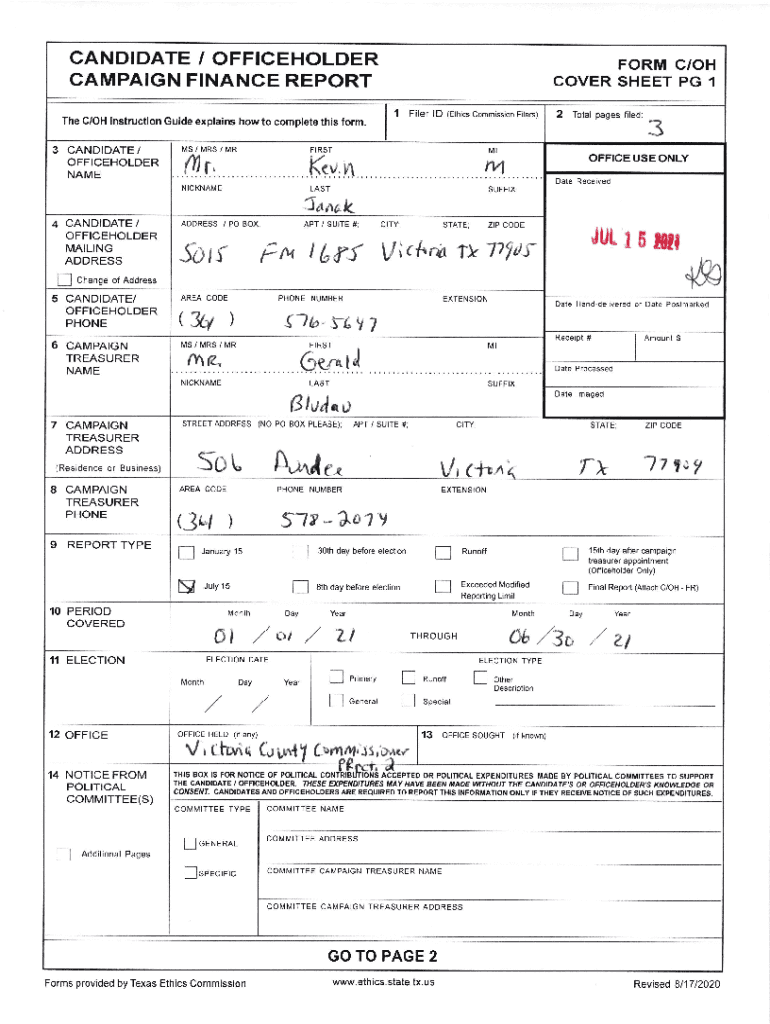 CANDIDATE / OFFICEHOLDER
CAMPAIGN FINANCE REPORT
FORM C/OH
COVER SHEET PG 1
The C/OH Instruction Guide explains how to complete this form.
1 Filer ID (Ethics Commission Filers)
2 Total pages filed:
3
3 CANDIDATE / OFFICEHOLDER NAME
MS / MRS / MR FIRST MI
Mr. Kevin M
NICKNAME LAST SUFFIX
Janak
OFFICE USE ONLY
Date Received
JUL 15 2021
4 CANDIDATE / OFFICEHOLDER MAILING ADDRESS
Change of Address
ADDRESS / PO BOX; APT / SUITE #; CITY; STATE; ZIP CODE
5015 FM 1685 Victoria TX 77905
5 CANDIDATE/ OFFICEHOLDER PHONE
AREA CODE PHONE NUMBER EXTENSION
(361) 576-5647
Date Hand-delivered or Date Postmarked
Receipt # Amount $
Date Processed
Date Imaged
6 CAMPAIGN TREASURER NAME
MS / MRS / MR FIRST MI
MR. Gerald
NICKNAME LAST SUFFIX
Bludau
7 CAMPAIGN TREASURER ADDRESS
(Residence or Business)
STREET ADDRESS (NO PO BOX PLEASE); APT / SUITE #; CITY; STATE; ZIP CODE
506 Victoria TX 77904
8 CAMPAIGN TREASURER PHONE
AREA CODE PHONE NUMBER EXTENSION
(361) 578-2074
9 REPORT TYPE
January 15 30th day before election Runoff 15th day after campaign treasurer appointment (Officeholder Only)
July 15 8th day before election Exceeded Modified Reporting Limit Final Report (Attach C/OH - FR)
10 PERIOD COVERED
Month Day Year Month Day Year
01 / 01 / 21 THROUGH 06 / 30 / 21
11 ELECTION
ELECTION DATE ELECTION TYPE
Month Day Year
/ /
Primary Runoff Other Description
General Special
12 OFFICE
OFFICE HELD (if any)
Victoria County Commissioner
Prct. 2
13 OFFICE SOUGHT (if known)
14 NOTICE FROM POLITICAL COMMITTEE(S)
Additional Pages
THIS BOX IS FOR NOTICE OF POLITICAL CONTRIBUTIONS ACCEPTED OR POLITICAL EXPENDITURES MADE BY POLITICAL COMMITTEES TO SUPPORT
THE CANDIDATE / OFFICEHOLDER. THESE EXPENDITURES MAY HAVE BEEN MADE WITHOUT THE CANDIDATE'S OR OFFICEHOLDER'S KNOWLEDGE OR
CONSENT. CANDIDATES AND OFFICEHOLDERS ARE REQUIRED TO REPORT THIS INFORMATION ONLY IF THEY RECEIVE NOTICE OF SUCH EXPENDITURES.
COMMITTEE TYPE COMMITTEE NAME
GENERAL
SPECIFIC
COMMITTEE ADDRESS
COMMITTEE CAMPAIGN TREASURER NAME
COMMITTEE CAMPAIGN TREASURER ADDRESS
GO TO PAGE 2
Forms provided by Texas Ethics Commission
www.ethics.state.tx.us
Revised 8/17/2020